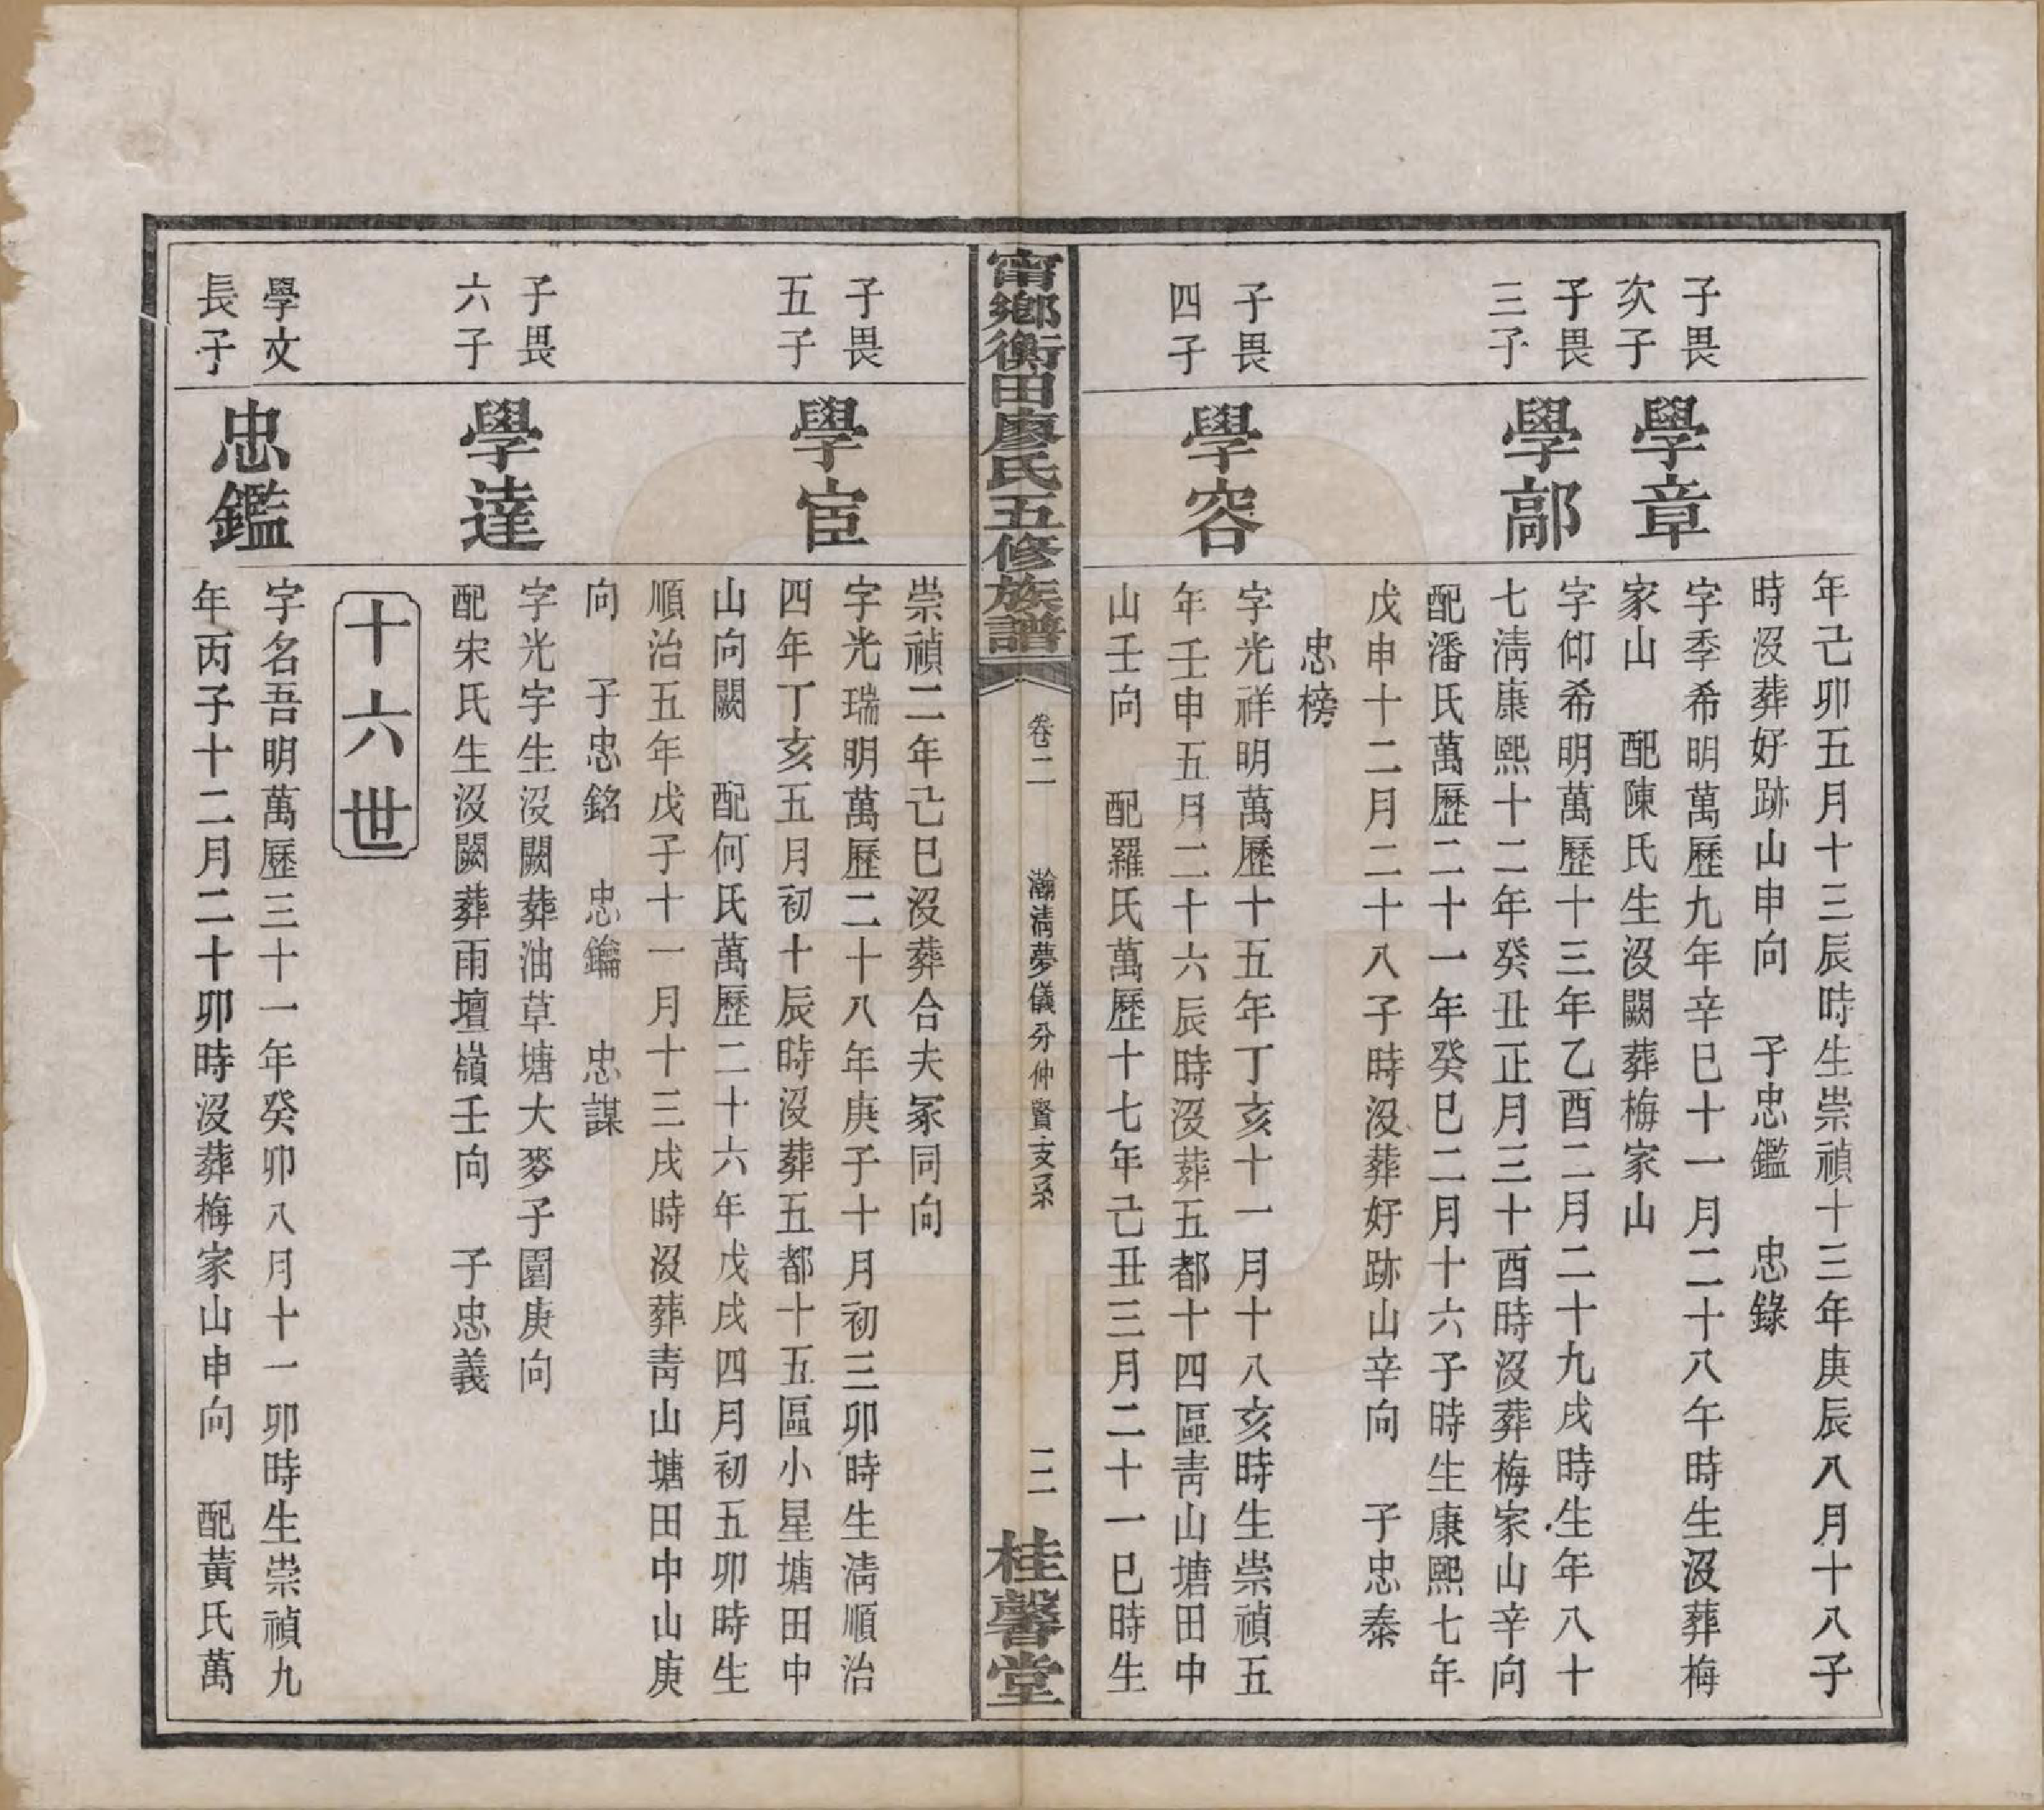 年己卯五月十三辰時生崇禎十三年庚辰八月十八子
時沒葬好跡山申向　子忠鑑　忠錄
子畏
次子
學章
字季希明萬歷九年辛巳十一月二十八午時生沒葬梅
家山　配陳氏生沒闕葬梅家山
子畏
三子
學鄗
字仰希明萬歷十三年乙酉二月二十九戌時生年八十
七淸康熙十二年癸丑正月三十酉時沒葬梅家山辛向
配潘氏萬歷二十一年癸巳二月十六子時生康熙七年
戊申十二月二十八子時沒葬好跡山辛向　子忠泰
忠榜
子畏
四子
學容
字光祥明萬歷十五年丁亥十一月十八亥時生崇禎五
年壬申五月二十六辰時沒葬五都十四區靑山塘田中
山壬向　配羅氏萬歷十七年己丑三月二十一巳時生
甯鄉衡田廖氏五修族譜
卷二
瀚淸夢儀分仲賢支系
二二
桂馨堂
崇禎二年己巳沒葬合夫冢同向
子畏
五子
學宦
字光瑞明萬歷二十八年庚子十月初三卯時生淸順治
四年丁亥五月初十辰時沒葬五都十五區小星塘田中
山向闕　配何氏萬歷二十六年戊戌四月初五卯時生
順治五年戊子十一月十三戌時沒葬靑山塘田中山庚
向　子忠銘　忠鑰　忠謀
子畏
六子
學達
字光字生沒闕葬油草塘大麥子園庚向
配宋氏生沒闕葬雨壇嶺壬向　子忠義
十六世
學文
長子
忠鑑
字名吾明萬歷三十一年癸卯八月十一卯時生崇禎九
年丙子十二月二十卯時沒葬梅家山申向　配黃氏萬